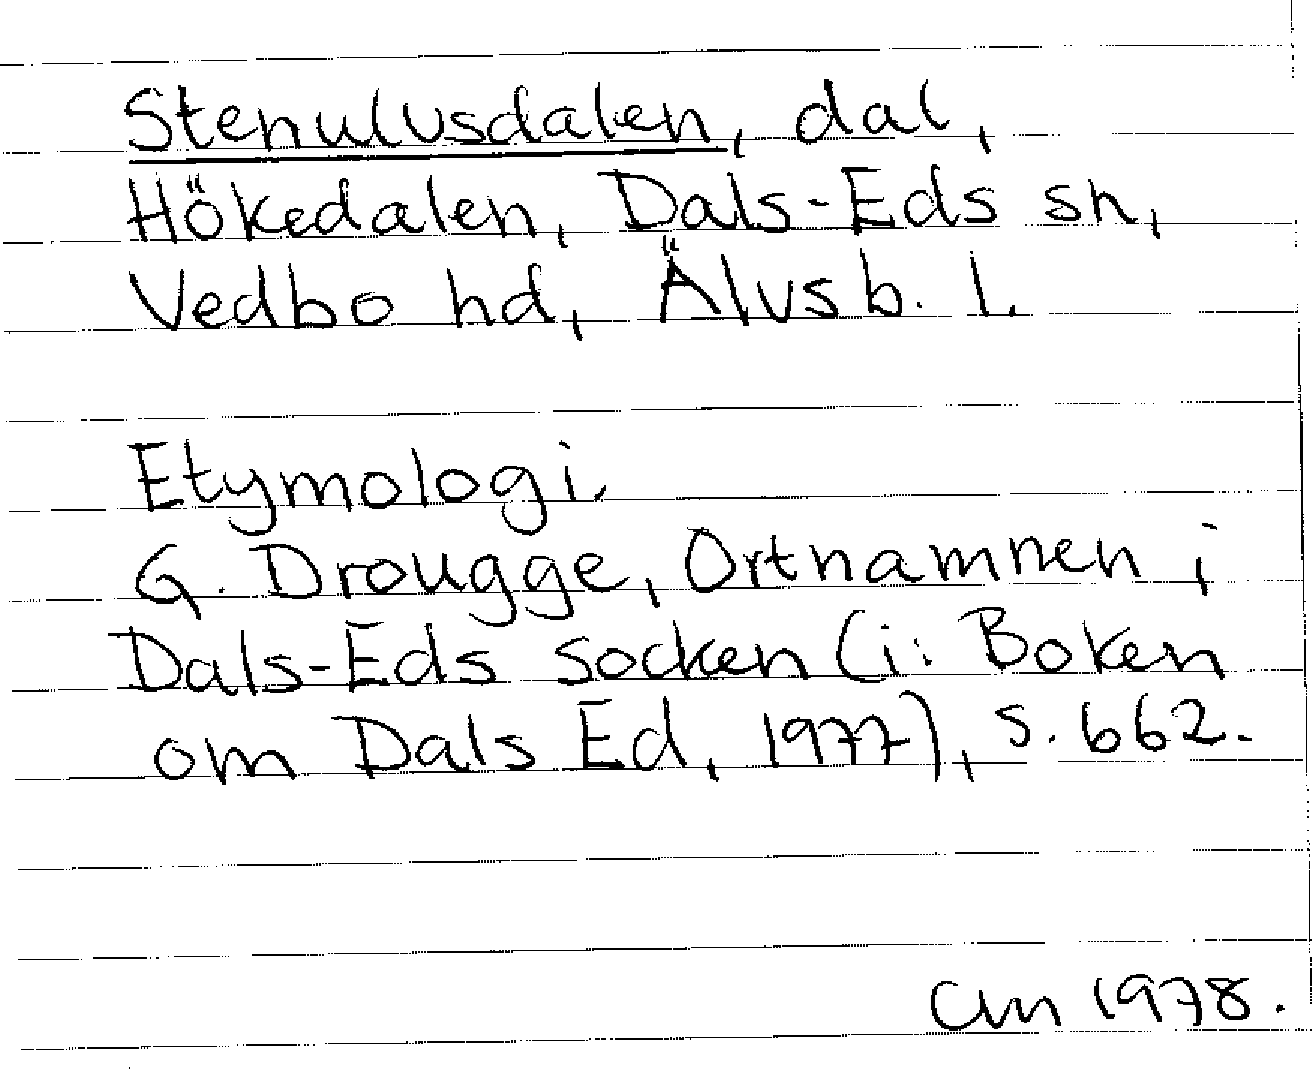 Stenulvsdalen, dal,
Hökedalen, Dals-Eds sn,
Vedbo hd, Älvsb. l.
Etymologi
G. Drougge, Ortnamnen i
Dals-Eds socken (i: Boken
om Dals Ed, 1977), s. 662.
1978.